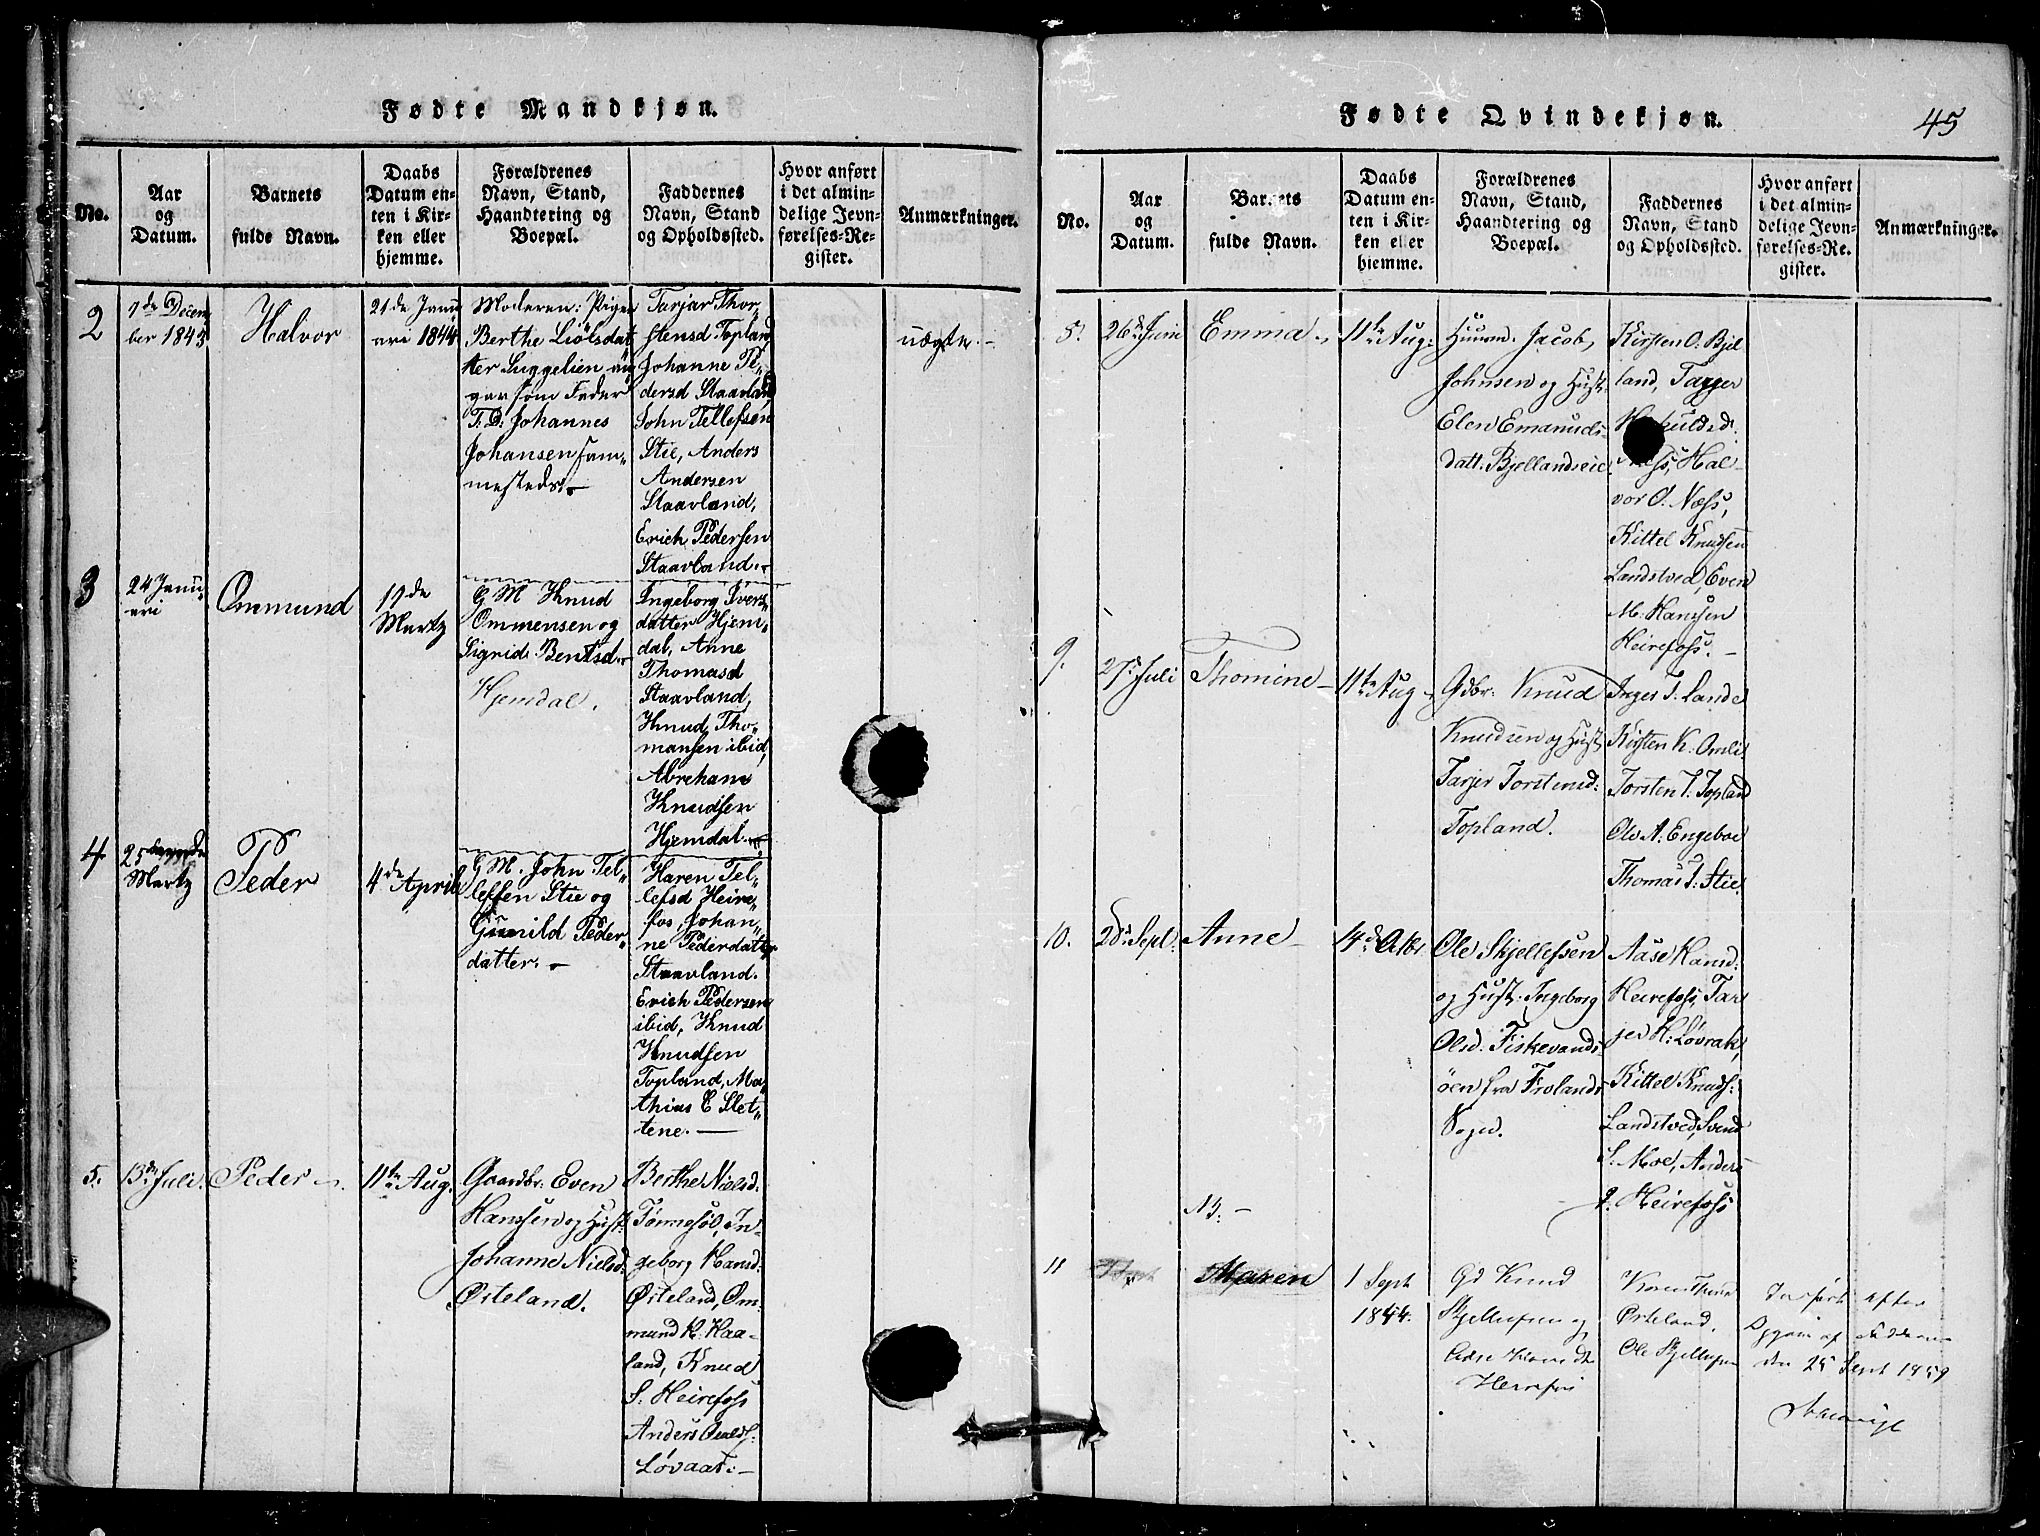 Fødte Mandkjøn.
No.
Aar
og
Datum.
Barnets
fulde Navn.
Daabs
Datum en-
ten i Kir-
ken eller
hjemme.
Forældrenes
Navn, Stand,
Haandtering og
Boepæl.
Faddernes
Navn, Stand
og Opholdssted.
Hvor anført
i det almin-
delige Jevn-
førelses-Re-
gister.
Anmærkninger.
2
7de Decem
ber 1843
Halvor
21de Janu
ari 1844
Moderen: Pigen
Berthe Liølsdat
ter Suggelien an
gav som Fader
T. D: Johannes
Johansen sam„
mesteds.-
Tarjar Thor„
stensd Topland
Johanne Pe„
dersd Staavland
John Tellefsen
Stie, Anders
Andersen
Staavland,
Erich Pedersen
Staavland.-
uægte.-
3
24 Janu
ari
Ommund
17de
Martz
G M Knud
Ommensen og
Sigrid Bentsd.-
Hjemdal.
Ingeborg Ivers„
datter Hjem„
dal, Anne
Thomasd
Staavland,
Knud Tho„
mansen ibid,
Abreham
Knudsen
Hjemdal.-
4
25de
Martz
Peder
4de April
G M. John Tel„
lefsen Stie og
Gunild Peder„
datter.-
Karen Tel„
lefsd Heire„
fos, Johan„
ne Pederdatter
Staavland.
Erich Pedersen
ibid, Knud
Knudsen
Topland, Ma„
thias E Slet„
tene.-
5.
13de Juli.
Peder -.
11te Aug.
Gaardbr. Even
Hanssen og Hust.
Johanne Nielsd.
Østeland.
Berthe Nielsd.
Tønnesöl, In-
geborg Hansd.
Østeland, Om-
mund K. Haa-
land, Knud
S. Heirefoss
Anders
Løvaas.-
Fødte Qvindekjøn.
45
No.
Aar
og
Datum.
Barnets
fulde Navn.
Daabs
Datum en-
ten i Kir-
ken eller
hjemme.
Forældrenes
Navn, Stand,
Haandtering og
Boepæl.
Faddernes
Navn, Stand
og Opholdssted.
Hvor anført
i det almin-
delige Jevn-
førelses-Re-
gister.
Anmærkninger.
8.
26de Juni
Emma -
11te Aug:
Huusm. Jacob
Johnsen og Hust.
Elen Emanuels-
datt. Bjellandseie
Kirsten O. Bjel
land, Tarjer
Næss, Hal-
vor O. Næss,
Kittel Knudsen
Landstved, Even
M. Hanssen
Heirefoss.-
9.
27. Juli
Thomine -
11te Aug -
Gdbr. Knud
Knudsen og Hust.
Tarjer Torstensd.
Topland.
Inger T. Lande
Kirsten K. Omli
Torsten T. Topland
Ole A. Engeboe
Thomas T. Stie.
10.
28. Sept.
Anne -
14de Octbr
Ole Skjellefsen
og Hust. Ingeborg
Olsd. Fiskevands-
öen fra Frolands
Sogn.
Aase Hansd.
Heirefoss, Tar
jer H. Løvrak,
Kittel Knuds.
Landstved, Svend
S. Moe, Anders
Heirefoss
11
Maren
1 Sept
1844.
Gd Knud
Skjellefsen og
Østeland.
Ole Skjellefsen
efter
Opgave af
den 25 Sept 1859